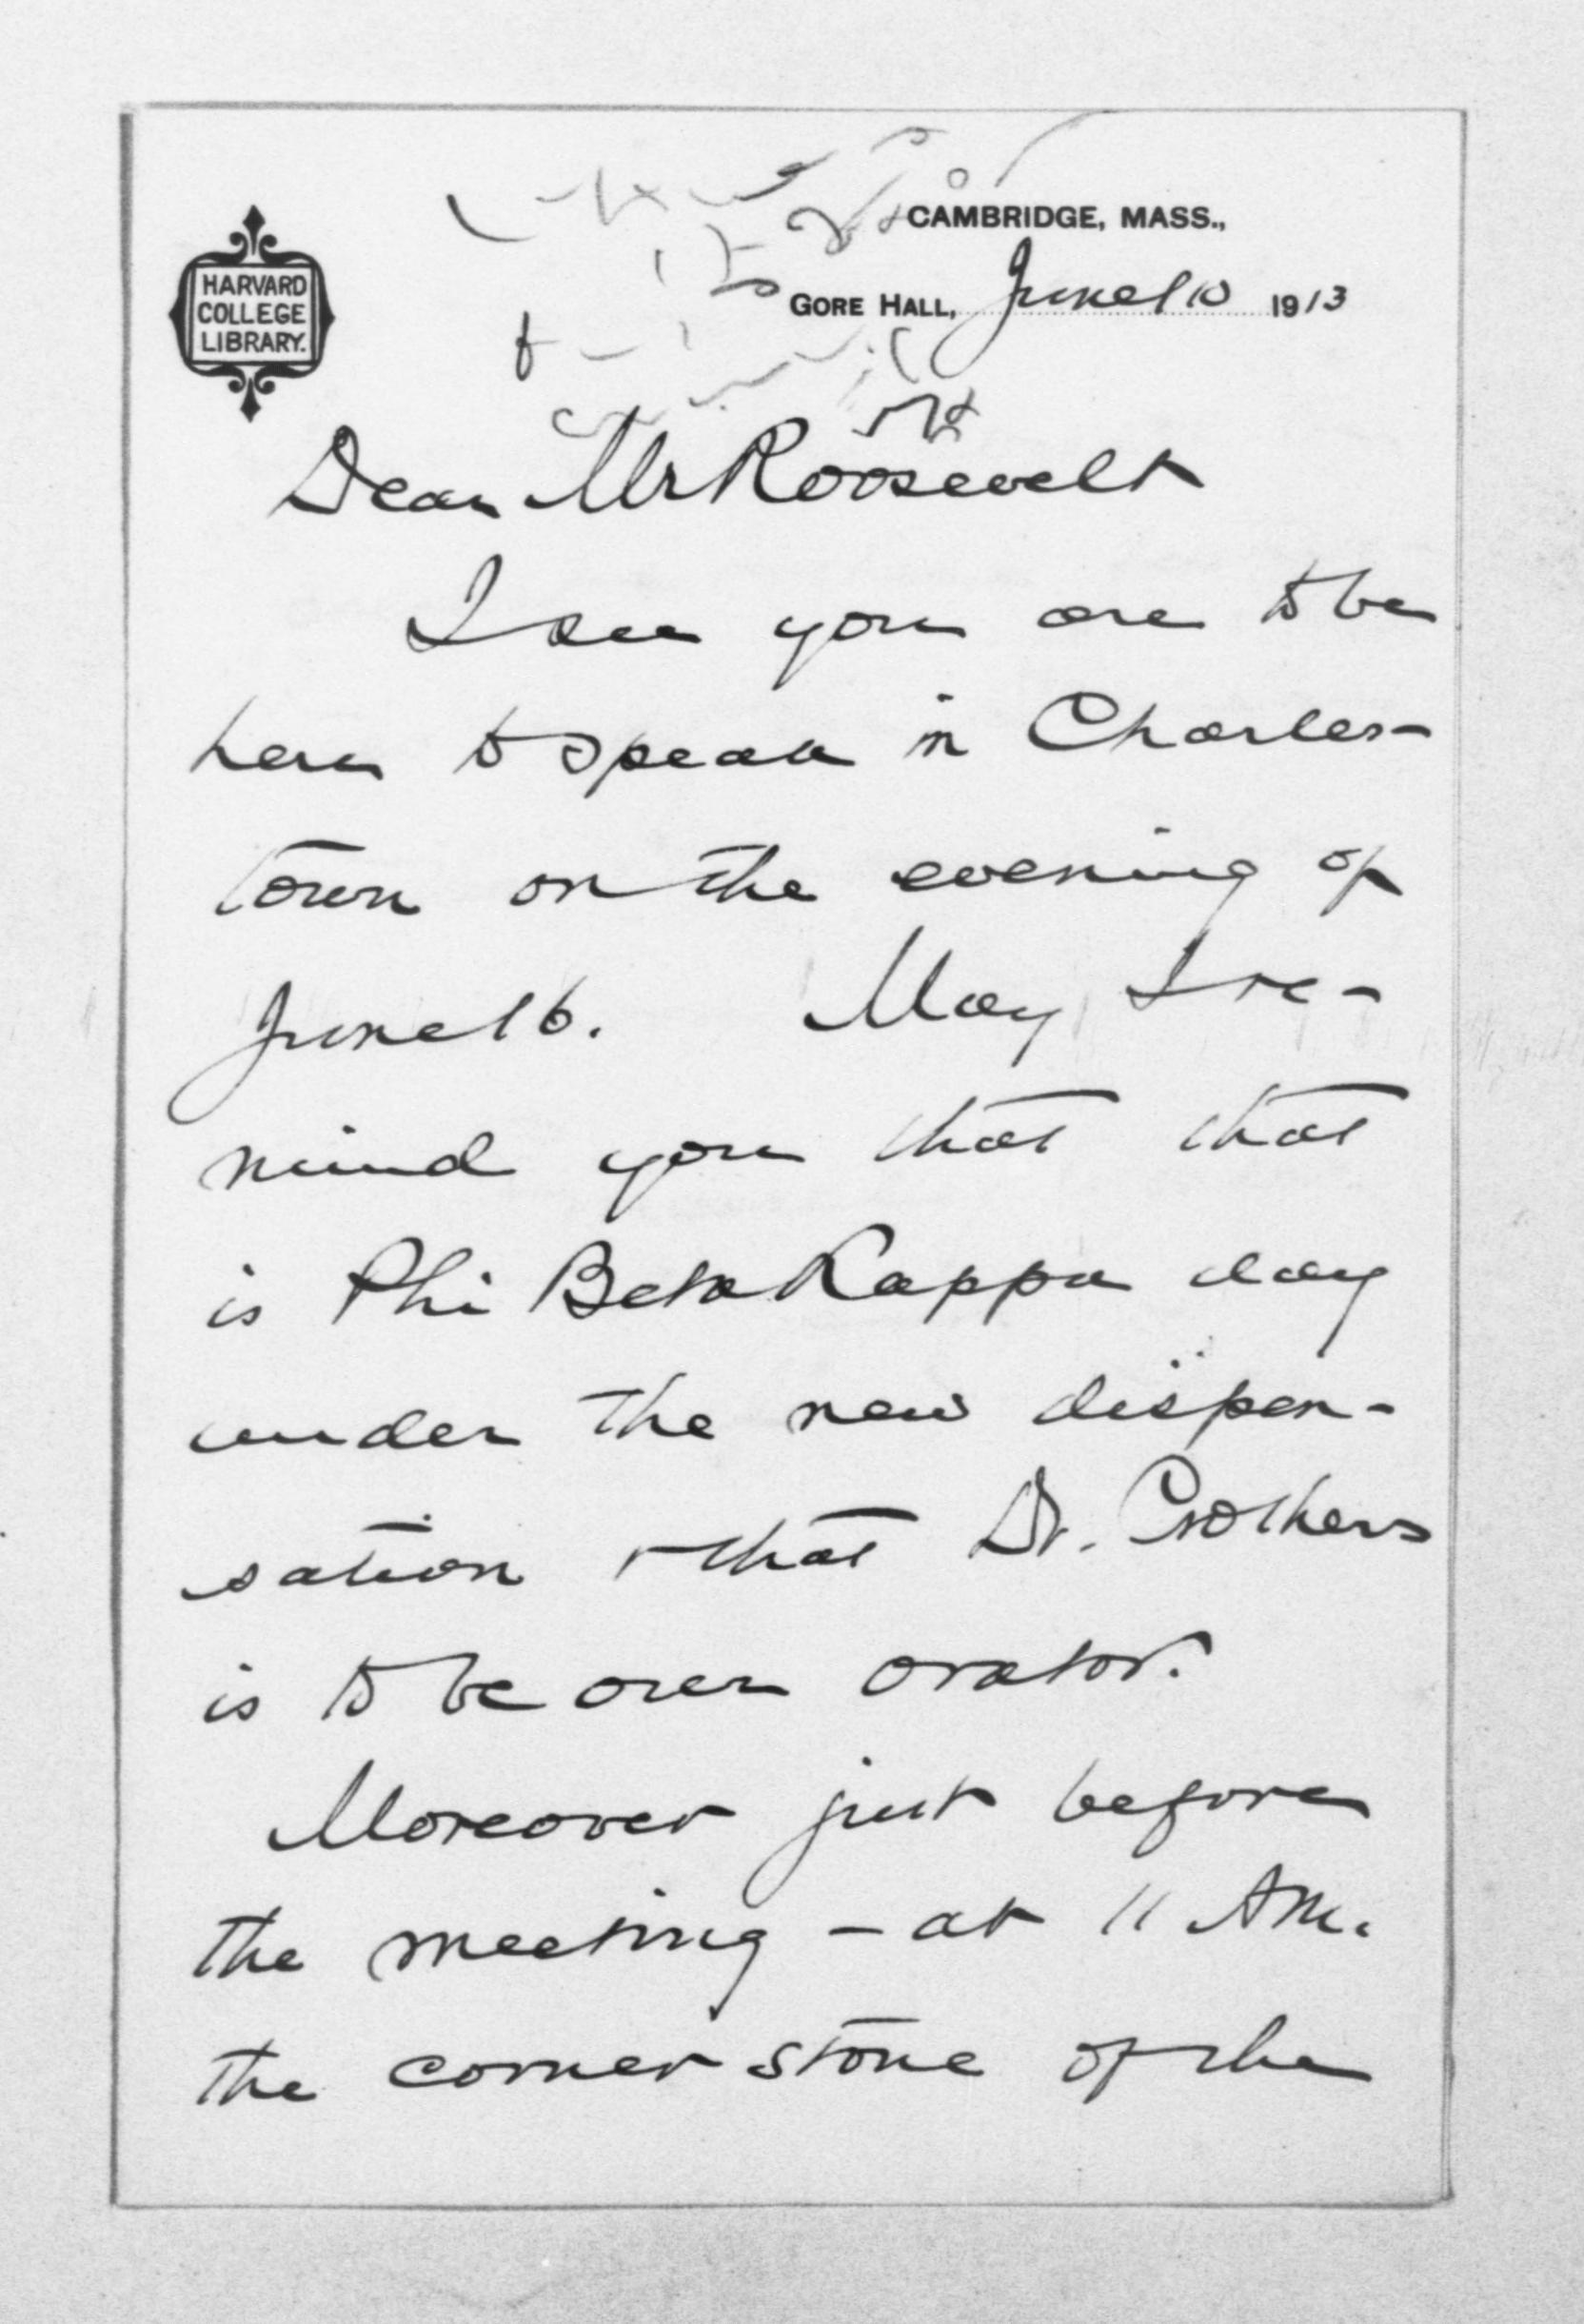 HARVARD
COLLEGE
LIBRARY.
CAMBRIDGE, MASS.,
GORE HALL, June 10 1913
Dear Mr Roosevelt
I see you are to be
here to speak in Charles-
town on the evening of
June 16. May I re-
mind you that that
is Phi Beta Kappa day
under the new dispen-
sation & that Dr. Crothers
is to be our orator.
Moreover just before
the meeting - at 11 AM.
the corner stone of the